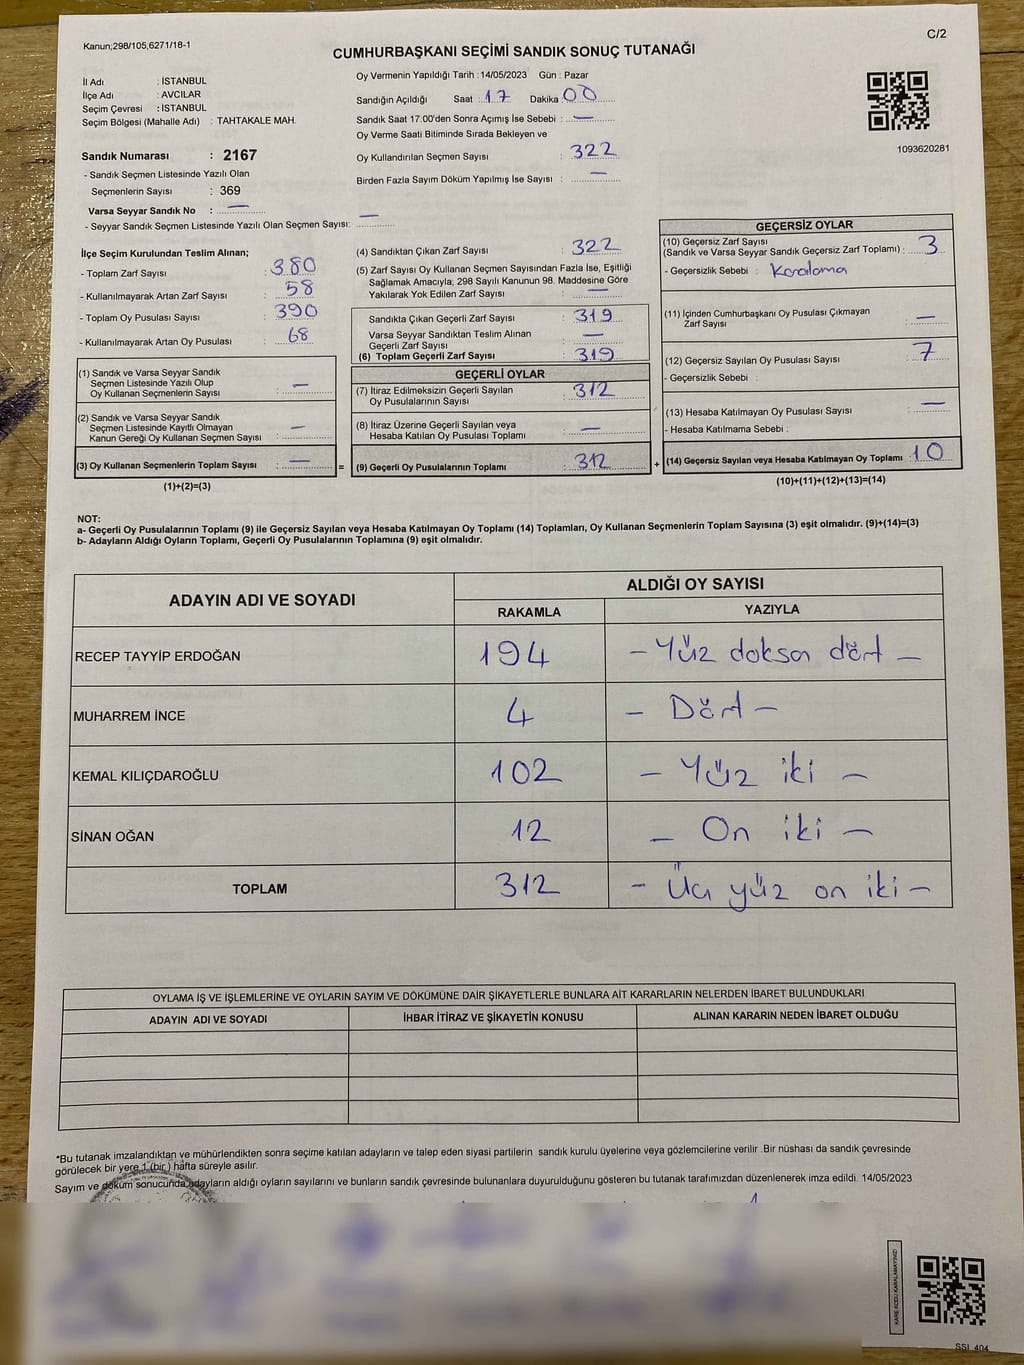 Kanun;298/105,6271/18-1
C/2
CUMHURBAŞKANI SEÇİMİ SANDIK SONUÇ TUTANAĞI
İl Adı : İSTANBUL
İlçe Adı : AVCILAR
Seçim Çevresi : İSTANBUL
Seçim Bölgesi (Mahalle Adı) : TAHTAKALE MAH.
Sandık Numarası : 2167
- Sandık Seçmen Listesinde Yazılı Olan
Seçmenlerin Sayısı : 369
Varsa Seyyar Sandık No : —
- Seyyar Sandık Seçmen Listesinde Yazılı Olan Seçmen Sayısı: —
Oy Vermenin Yapıldığı Tarih : 14/05/2023 Gün : Pazar
Sandığın Açıldığı Saat : 17 Dakika : 00
Sandık Saat 17:00'den Sonra Açımış İse Sebebi : —
Oy Verme Saati Bitiminde Sırada Bekleyen ve
Oy Kullandırılan Seçmen Sayısı : 322
Birden Fazla Sayım Döküm Yapılmış İse Sayısı : —
1093620281
İlçe Seçim Kurulundan Teslim Alınan;
- Toplam Zarf Sayısı : 380
- Kullanılmayarak Artan Zarf Sayısı : 58
- Toplam Oy Pusulası Sayısı : 390
- Kullanılmayarak Artan Oy Pusulası : 68
(1) Sandık ve Varsa Seyyar Sandık
Seçmen Listesinde Yazılı Olup
Oy Kullanan Seçmenlerin Sayısı : —
(2) Sandık ve Varsa Seyyar Sandık
Seçmen Listesinde Kayıtlı Olmayan
Kanun Gereği Oy Kullanan Seçmen Sayısı : —
(3) Oy Kullanan Seçmenlerin Toplam Sayısı : —
(1)+(2)=(3)
=
(4) Sandıktan Çıkan Zarf Sayısı : 322
(5) Zarf Sayısı Oy Kullanan Seçmen Sayısından Fazla İse, Eşitliği
Sağlamak Amacıyla, 298 Sayılı Kanunun 98. Maddesine Göre
Yakılarak Yok Edilen Zarf Sayısı : —
Sandıkta Çıkan Geçerli Zarf Sayısı : 319
Varsa Seyyar Sandıktan Teslim Alınan
Geçerli Zarf Sayısı : —
(6) Toplam Geçerli Zarf Sayısı : 319
GEÇERLİ OYLAR
(7) İtiraz Edilmeksizin Geçerli Sayılan
Oy Pusulalarının Sayısı : 312
(8) İtiraz Üzerine Geçerli Sayılan veya
Hesaba Katılan Oy Pusulası Toplamı : —
(9) Geçerli Oy Pusulalarının Toplamı : 312
+
GEÇERSİZ OYLAR
(10) Geçersiz Zarf Sayısı
(Sandık ve Varsa Seyyar Sandık Geçersiz Zarf Toplamı) : 3
- Geçersizlik Sebebi : Karalama
(11) İçinden Cumhurbaşkanı Oy Pusulası Çıkmayan
Zarf Sayısı : —
(12) Geçersiz Sayılan Oy Pusulası Sayısı : 7
- Geçersizlik Sebebi :
(13) Hesaba Katılmayan Oy Pusulası Sayısı : —
- Hesaba Katılmama Sebebi :
(14) Geçersiz Sayılan veya Hesaba Katılmayan Oy Toplamı : 10
(10)+(11)+(12)+(13)=(14)
NOT:
a- Geçerli Oy Pusulalarının Toplamı (9) ile Geçersiz Sayılan veya Hesaba Katılmayan Oy Toplamı (14) Toplamları, Oy Kullanan Seçmenlerin Toplam Sayısına (3) eşit olmalıdır. (9)+(14)=(3)
b- Adayların Aldığı Oyların Toplamı, Geçerli Oy Pusulalarının Toplamına (9) eşit olmalıdır.
ADAYIN ADI VE SOYADI
ALDIĞI OY SAYISI
RAKAMLA YAZIYLA
RECEP TAYYİP ERDOĞAN 194 – Yüz doksan dört –
MUHARREM İNCE 4 – Dört –
KEMAL KILIÇDAROĞLU 102 – Yüz iki –
SİNAN OĞAN 12 – On iki –
TOPLAM 312 – Üç yüz on iki –
OYLAMA İŞ VE İŞLEMLERİNE VE OYLARIN SAYIM VE DÖKÜMÜNE DAİR ŞİKAYETLERLE BUNLARA AİT KARARLARIN NELERDEN İBARET BULUNDUKLARI
ADAYIN ADI VE SOYADI İHBAR İTİRAZ VE ŞİKAYETİN KONUSU ALINAN KARARIN NEDEN İBARET OLDUĞU
*Bu tutanak imzalandıktan ve mühürlendikten sonra seçime katılan adayların ve talep eden siyasi partilerin sandık kurulu üyelerine veya gözlemcilerine verilir .Bir nüshası da sandık çevresinde
görülecek bir yere 1 (bir ) hafta süreyle asılır.
Sayım ve döküm sonucunda adayların aldığı oyların sayılarını ve bunların sandık çevresinde bulunanlara duyurulduğunu gösteren bu tutanak tarafımızdan düzenlenerek imza edildi. 14/05/2023
KARE KODU KARALAMAYINIZ!
SSI_404